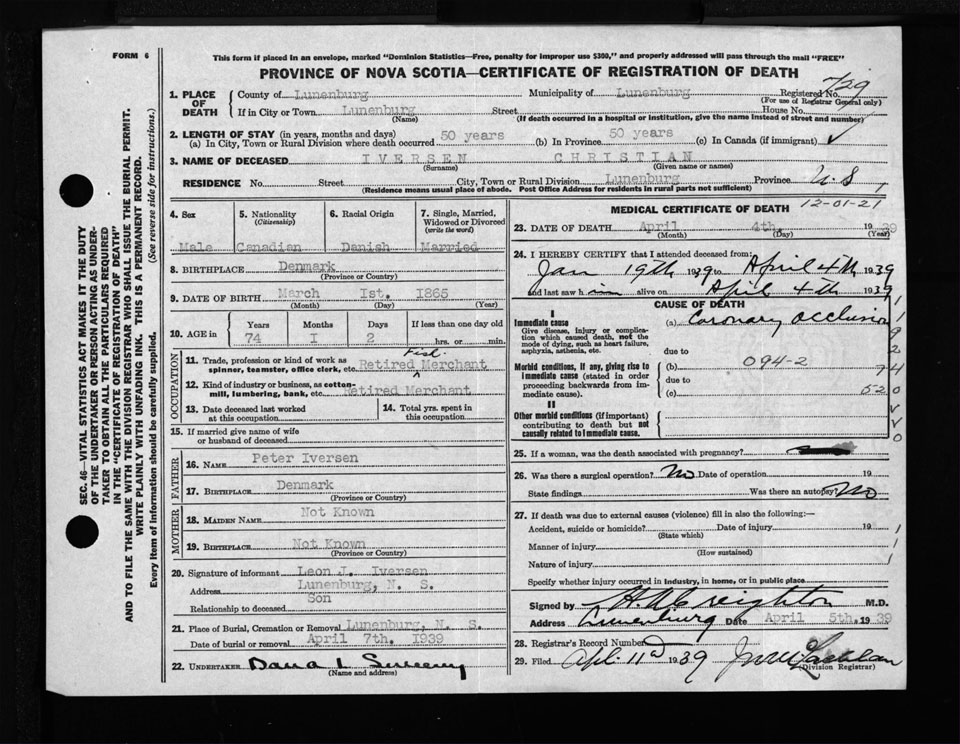 FORM 6
This form if placed in an envelope, marked "Dominion Statistics—Free, penalty for improper use $300," and properly addressed will pass through the mail "FREE"
PROVINCE OF NOVA SCOTIA—CERTIFICATE OF REGISTRATION OF DEATH
SEC. 46—VITAL STATISTICS ACT MAKES IT THE DUTY
OF THE UNDERTAKER OR PERSON ACTING AS UNDER-
TAKER TO OBTAIN ALL THE PARTICULARS REQUIRED
IN THE "CERTIFICATE OF REGISTRATION OF DEATH"
AND TO FILE THE SAME WITH THE DIVISION REGISTRAR WHO SHALL ISSUE THE BURIAL PERMIT.
WRITE PLAINLY WITH UNFADING INK. THIS IS A PERMANENT RECORD.
Every item of information should be carefully supplied. (See reverse side for instructions.)
1. PLACE OF DEATH County of Lunenburg Municipality of Lunenburg Registered No. 729
(For use of Registrar General only)
If in City or Town Lunenburg Street House No.
(Name) (If death occurred in a hospital or institution, give the name instead of street and number)
2. LENGTH OF STAY (in years, months and days)
(a) In City, Town or Rural Division where death occurred 50 years (b) In Province 50 years (c) In Canada (if immigrant)
3. NAME OF DECEASED IVERSEN CHRISTIAN
(Surname) (Given name or names)
RESIDENCE No. Street City, Town or Rural Division Lunenburg Province U.S 1
(Residence means usual place of abode. Post Office Address for residents in rural parts not sufficient)
4. Sex 5. Nationality (Citizenship) 6. Racial Origin 7. Single, Married, Widowed or Divorced (write the word)
Male Canadian Danish Married
8. BIRTHPLACE Denmark
(Province or Country)
9. DATE OF BIRTH March 1st. 1865
(Month) (Day) (Year)
10. AGE in Years Months Days If less than one day old
74 1 2 hrs. or min.
OCCUPATION
11. Trade, profession or kind of work as spinner, teamster, office clerk, etc. Retired Fish Merchant
12. Kind of industry or business, as cotton-mill, lumbering, bank, etc. Retired Merchant
13. Date deceased last worked at this occupation 14. Total yrs. spent in this occupation
15. If married give name of wife or husband of deceased
FATHER
16. NAME Peter Iversen
17. BIRTHPLACE Denmark
(Province or Country)
MOTHER
18. MAIDEN NAME Not Known
19. BIRTHPLACE Not Known
(Province or Country)
20. Signature of informant Leon J. Iversen
Address Lunenburg, N. S.
Relationship to deceased Son
21. Place of Burial, Cremation or Removal Lunenburg, N. S.
Date of burial or removal April 7th. 1939
22. UNDERTAKER Dana L Sweeny
(Name and address)
MEDICAL CERTIFICATE OF DEATH
12-01-21
23. DATE OF DEATH April 4th. 1939
(Month) (Day) (Year)
24. I HEREBY CERTIFY that I attended deceased from
Jan 19th 1939 to April 4th 1939
and last saw him alive on April 4th 1939
CAUSE OF DEATH
I
Immediate cause
Give disease, injury or complication which caused death, not the mode of dying, such as heart failure, asphyxia, asthenia, etc.
(a) Coronary Occlusion
due to
Morbid conditions, if any, giving rise to immediate cause (stated in order proceeding backwards from immediate cause).
(b) 094-2
due to
(c)
II
Other morbid conditions (if important) contributing to death but not causally related to immediate cause.
25. If a woman, was the death associated with pregnancy?
26. Was there a surgical operation? No Date of operation 19
State findings Was there an autopsy? No
27. If death was due to external causes (violence) fill in also the following:—
Accident, suicide or homicide? Date of injury 19
(State which)
Manner of injury
(How sustained)
Nature of injury
Specify whether injury occurred in industry, in home, or in public place
Signed by H.A Creighton M.D.
Address Lunenburg Date April 5th. 1939
28. Registrar's Record Number
29. Filed Apl. 11th 1939
(Division Registrar)